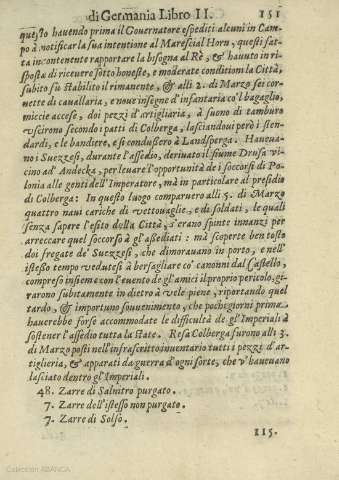 di Germania Libro II. 151
questo hauendo prima il Gouernatore espediti alcuni in Cam-
po à notificar la sua intentione al Marescial Horn, questi fat-
ta incontenente rapportare la bisogna al Rè, & hauuto in ri-
sposta di riceuere sotto honeste, e moderate conditioni la Città,
subito fù stabilito il rimanente, & alli 2. di Marzo sei cor-
nette di cauallaria, e noue insegne d'infantaria co'l bagaglio,
miccie accese, doi pezzi d'artigliaria, à suono di tamburo
vscirono secondo i patti di Colberga, lasciandoui però i sten-
dardi, e le bandiere, e si condussero à Landsperga. Haueua-
no i Suezzesi, durante l'assedio, deriuato il fiume Drusa vi-
cino ad Andecka, per leuare l'opportunità de i soccorsi di Po-
lonia alle genti dell'Imperatore, mà in particolare al presidio
di Colberga: In questo luogo comparuero alli 5. di Marzo
quattro naui cariche di vettouaglie, e di soldati, le quali
senza sapere l'esito della Città, s'erano spinte innanzi per
arreccare quel soccorso à gl'assediati: mà scoperte ben tosto
doi fregate de' Suezzesi, che dimorauano in porto, e nell'
istesso tempo vedutesi à bersagliare co' cannoni dal Castello,
compreso insieme con l'euento de gl'amici il proprio pericolo, gi-
rarono subitamente in dietro à vele piene, riportando quel
tardo, & importuno souuenimento, che pochi giorni prima
hauerebbe forse accommodate le difficultà de gl'Imperiali à
sostener l'assedio tutta la state. Resa Colberga furono alli 3.
di Marzo posti nell'infrascritto inuentario tutti i pezzi d'ar-
tiglieria, & apparati da guerra d'ogni sorte, che v'haueuano
lasciato dentro gl'Imperiali.
48. Zarre di Salnitro purgato.
7. Zarre dell'istesso non purgato.
7. Zarre di Solfo.
115.
Colección ABANCA